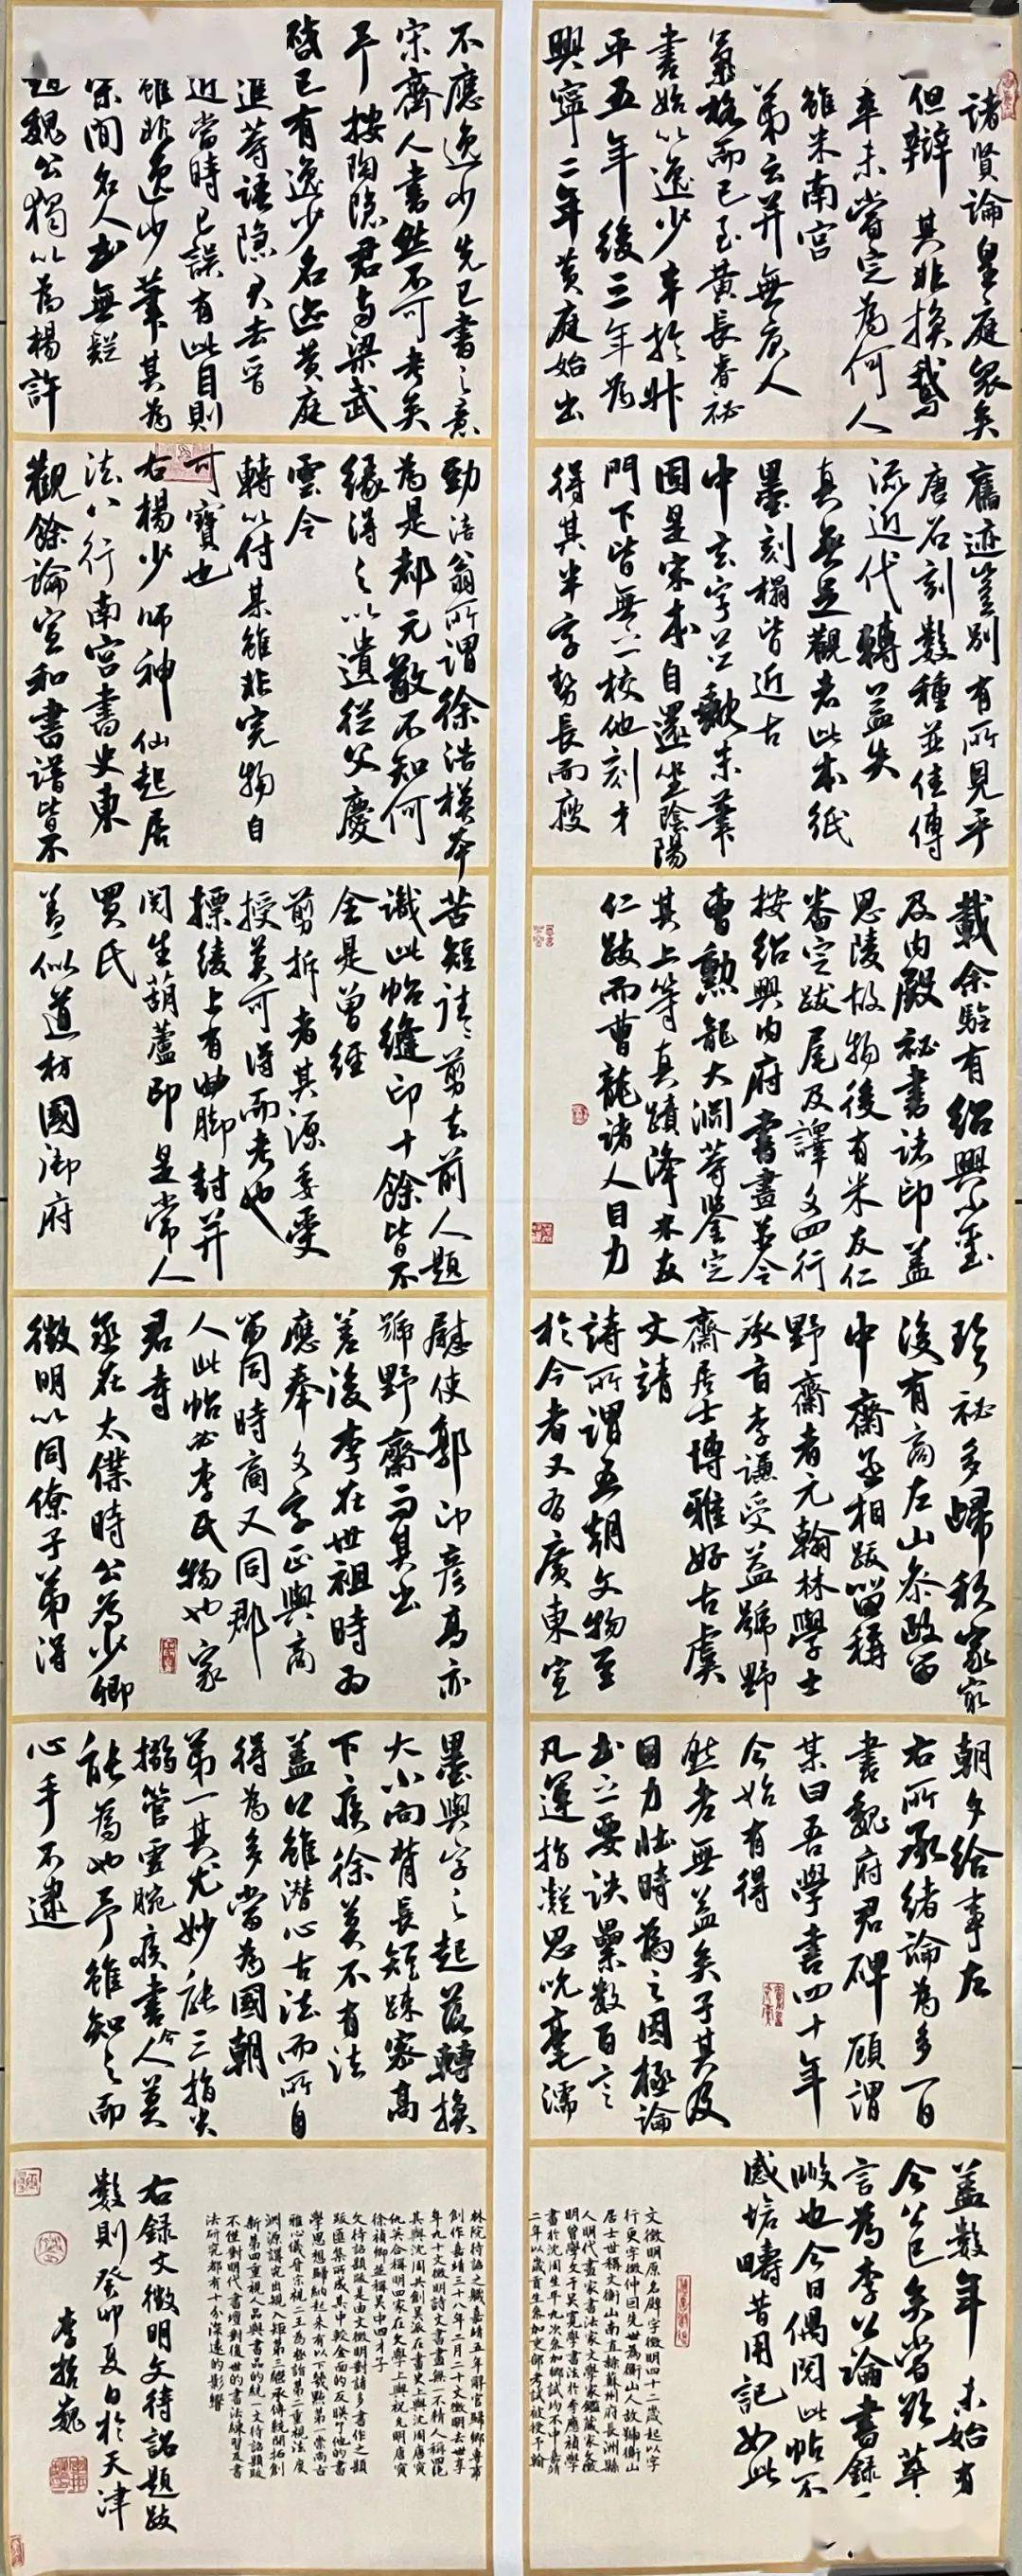 諸賢論黃庭眾矣
但辯其非換鵝
卒未嘗定為何人
雖米南宮
第云并無唐人
氣格而已至黃長睿祕
書始以逸少卒於昇
平五年後三年為
興寧二年黃庭始出
不應逸少先已書之意
宋齊人書然不可考矣
予按陶隱君與梁武
啓已有逸少名迹黃庭
進等語隱君去晉
近當時已誤有此目則
雖非逸少筆其為
宋間名人書無疑
趙魏公獨以為楊許
舊迹豈別有所見乎
唐石刻數種並佳傳
流近代轉益失
真無足觀者此本紙
墨刻榻皆近古
中玄字並缺末筆
固是宋本自還坐陰陽
門下皆無一校他刻才
得其半字勢長而瘦
勁涪翁所謂徐浩摸本
為是都元敬不知何
緣得之以遺從父慶
雲令
轉以付某雖非完物自
可寶也
右楊少師神仙起居
法八行南宮書史東
觀餘論宣和書譜皆不
載余驗有紹興小璽
及內殿祕書諸印蓋
思陵故物後有米友仁
審定跋尾及譯文四行
按紹興內府書畫並令
曹勳龍大淵等鑒定
其上等真蹟降米友
仁跋而曹龍諸人目力
苦短往往剪去前人題
識此帖縫印十餘皆不
全是曾經
剪拆者其源委受
授莫可得而考也
摽綾上有曲腳封并
閱生葫蘆印是常入
買氏
蓋似道枋國御府
珍祕多歸私家最
後有商左山參政留
中齋丞相跋留稱
野齋者元翰林學士
承旨李謙受益號野
齋居士博雅好古虞
文靖
詩所謂五朝文物至
於今者又有廣東宣
慰使郭卬彥高亦
號野齋而其出
差後李在世祖時為
應奉文字正與商
留同時商又同郡
人此帖必李氏物也家
君寺
丞在太僕時公為少卿
徵明以同僚子弟得
朝夕給事左
右所承緒論為多一日
書魏府君碑顧謂
某曰吾學書四十年
今始有得
然老無益矣子其及
目力壯時為之因極論
書之要訣累數百言
凡運指凝思吮毫濡
墨與字之起落轉換
大小向背長短疎密高
下疾徐莫不有法
蓋公雖潛心古法而所自
得為多當為國朝
第一其尤妙能三指尖
搦管虛腕疾書今人莫
能為也予雖知之而
心手不逮
蓋數年未始有
今公已矣嘗欲萃
言為李公論書錄
暇也今日偶閱此帖不
感愴疇昔用記如此
文徵明原名壁字徵明四十二歲起以字
行更字徵仲因先世為衡山人故號衡山
居士世稱文衡山南直隸蘇州府長洲縣
人明代畫家書法家文學家鑑藏家文徵
明曾學文于吳寬學書法於李應禎學
畫於沈周生平九次參加鄉試均不中嘉靖
二年以歲貢生參加吏部考試被授予翰
林院待詔之職嘉靖五年辭官歸鄉專事
創作嘉靖三十八年二月二十文徵明去世享
年九十文徵明詩文書畫無一不精人稱四絕
其與沈周共創吳派在畫史上與沈周唐寅
仇英合稱明四家在文學上與祝允明唐寅
徐禎卿並稱吳中四才子
文待詔題跋是由文徵明對諸多書作之題
跋匯集所成其中較全面的反映了他的書
學思想歸納起來有以下幾點第一崇尚古
雅心儀晉宗視二王為極詣第二重視法度
淵源講究出規入矩第三繼承傳統開拓創
新第四重視人品與書品的統一文待詔題跋
不僅對明代書壇對後世的書法練習及書
法研究都有十分深遠的影響
右錄文徵明文待詔題跋
數則癸卯夏日於天津
李哲巍